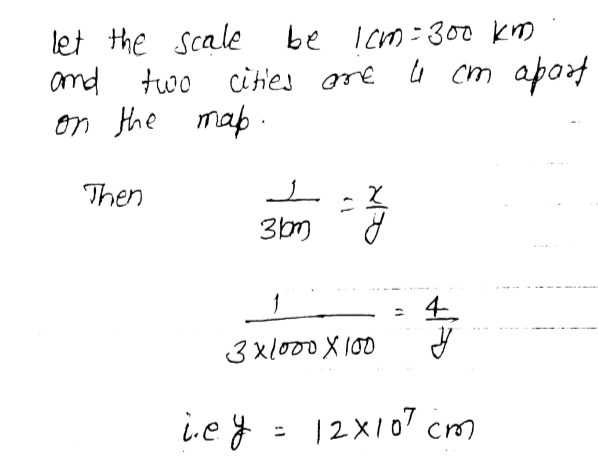 let the scale be 1cm = 300 km
and two cities are 4 cm apart
on the map.
Then 1/3km = x/y
1/3x1000x100 = 4/y
i.e y = 12x10^7 cm